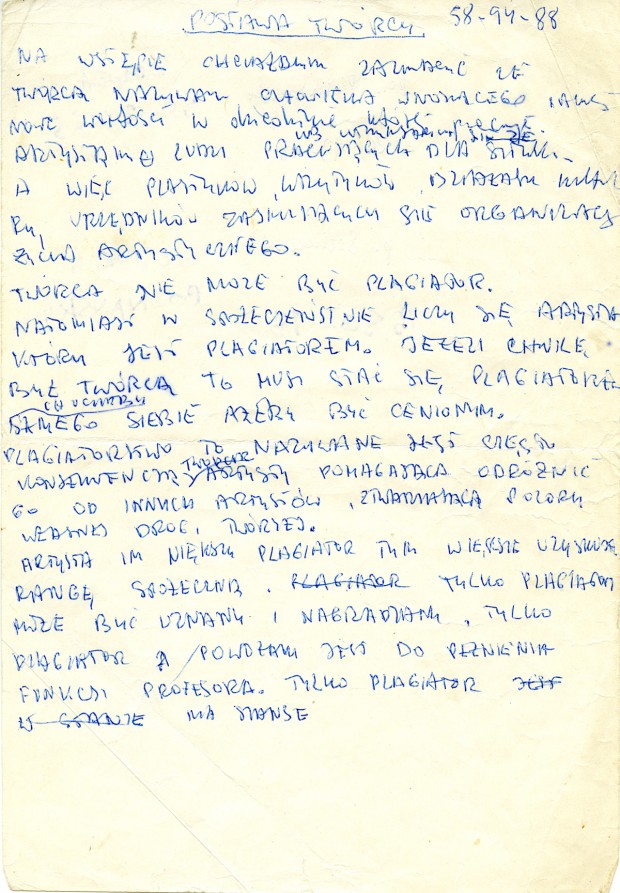 POSTAWA TWÓRCY 58-94-88
NA WSTĘPIE CHCIAŁBYM ZAZNACZYĆ ŻE
TWÓRCĄ NAZYWAM CZŁOWIEKA WNOSZĄCEGO JAKIEŚ
NOWE WARTOŚCI W dziedzinę którą
ARTYSTAMI LUDZI PRACUJĄCYCH DLA SZTUKI.
A WIĘC PLASTYKÓW, KRYTYKÓW, DZIAŁACZY KULTU
RY, URZĘDNIKÓW ZAJMUJĄCYCH SIĘ ORGANIZACJĄ
ŻYCIA ARTYSTYCZNEGO.
TWÓRCA NIE MOŻE BYĆ PLAGIATOR.
NATOMIAST W SPOŁECZEŃSTWIE LICZY SIĘ ARTYSTA
KTÓRY JEST PLAGIATOREM. JEŻELI CHWILĘ
BYŁ TWÓRCĄ TO MUSI STAĆ SIĘ PLAGIATOREM
CHOCIAŻBY
SAMEGO SIEBIE AŻEBY BYĆ CENIONYM.
PLAGIATORSTWO TO NAZYWANE JEST CZĘSTO
KONSEKWENCJĄ TWÓRCZĄ ARTYSTY POMAGAJĄCĄ ODRÓŻNIĆ
GO OD INNYCH ARTYSTÓW, STWARZAJĄCĄ POZORY
WŁASNEJ DROGI TWÓRCZEJ.
ARTYSTA IM WIĘKSZY PLAGIATOR TYM WIĘKSZE UZYSKUJE
RANGĘ SPOŁECZNĄ. PLAGIATOR TYLKO PLAGIATOR
MOŻE BYĆ UZNANY I NAGRADZANY, TYLKO
PLAGIATOR POWOŁANY JEST DO PEŁNIENIA
FUNKCJI PROFESORA. TYLKO PLAGIATOR JEST
W STANIE MA SZANSE